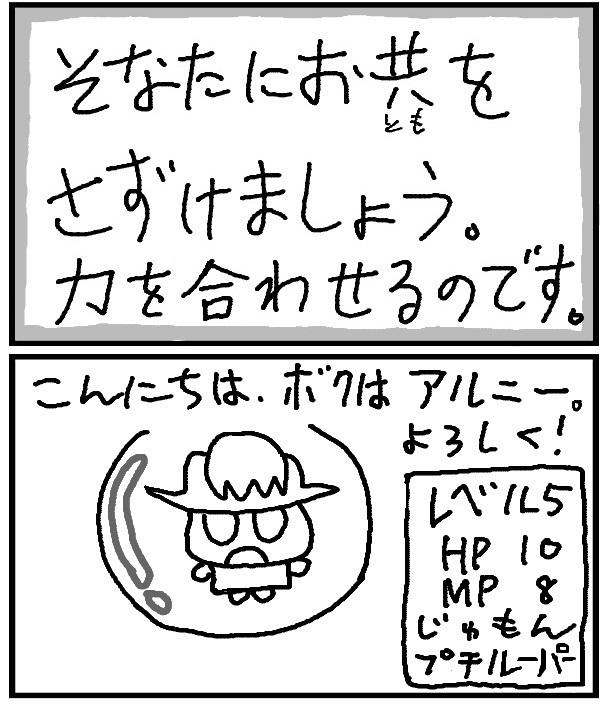 そなたにお共を
とも
さずけましょう。
力を合わせるのです。
こんにちは、ボクは アルニー。
よろしく!
レベル5
HP 10
MP 8
じゅもん
プチルーパー